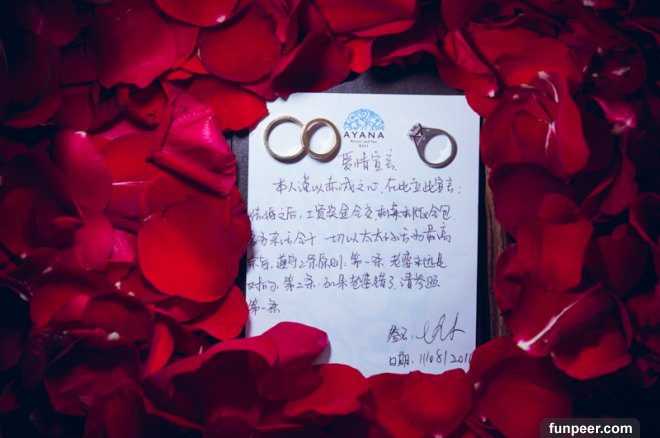 AYANA
Resort and Spa
BALI
爱情宣言
本人谨以赤诚之心,在此立此宣言:
结婚之后,工资奖金全交,剩菜剩饭全包
家务杂活全干 一切以太太的话为最高
宗旨,遵守二条原则,第一条 老婆永远是
对的,第二条,如果老婆错了,请参照
第一条
签名:
日期:11/08/201
funpeer.com